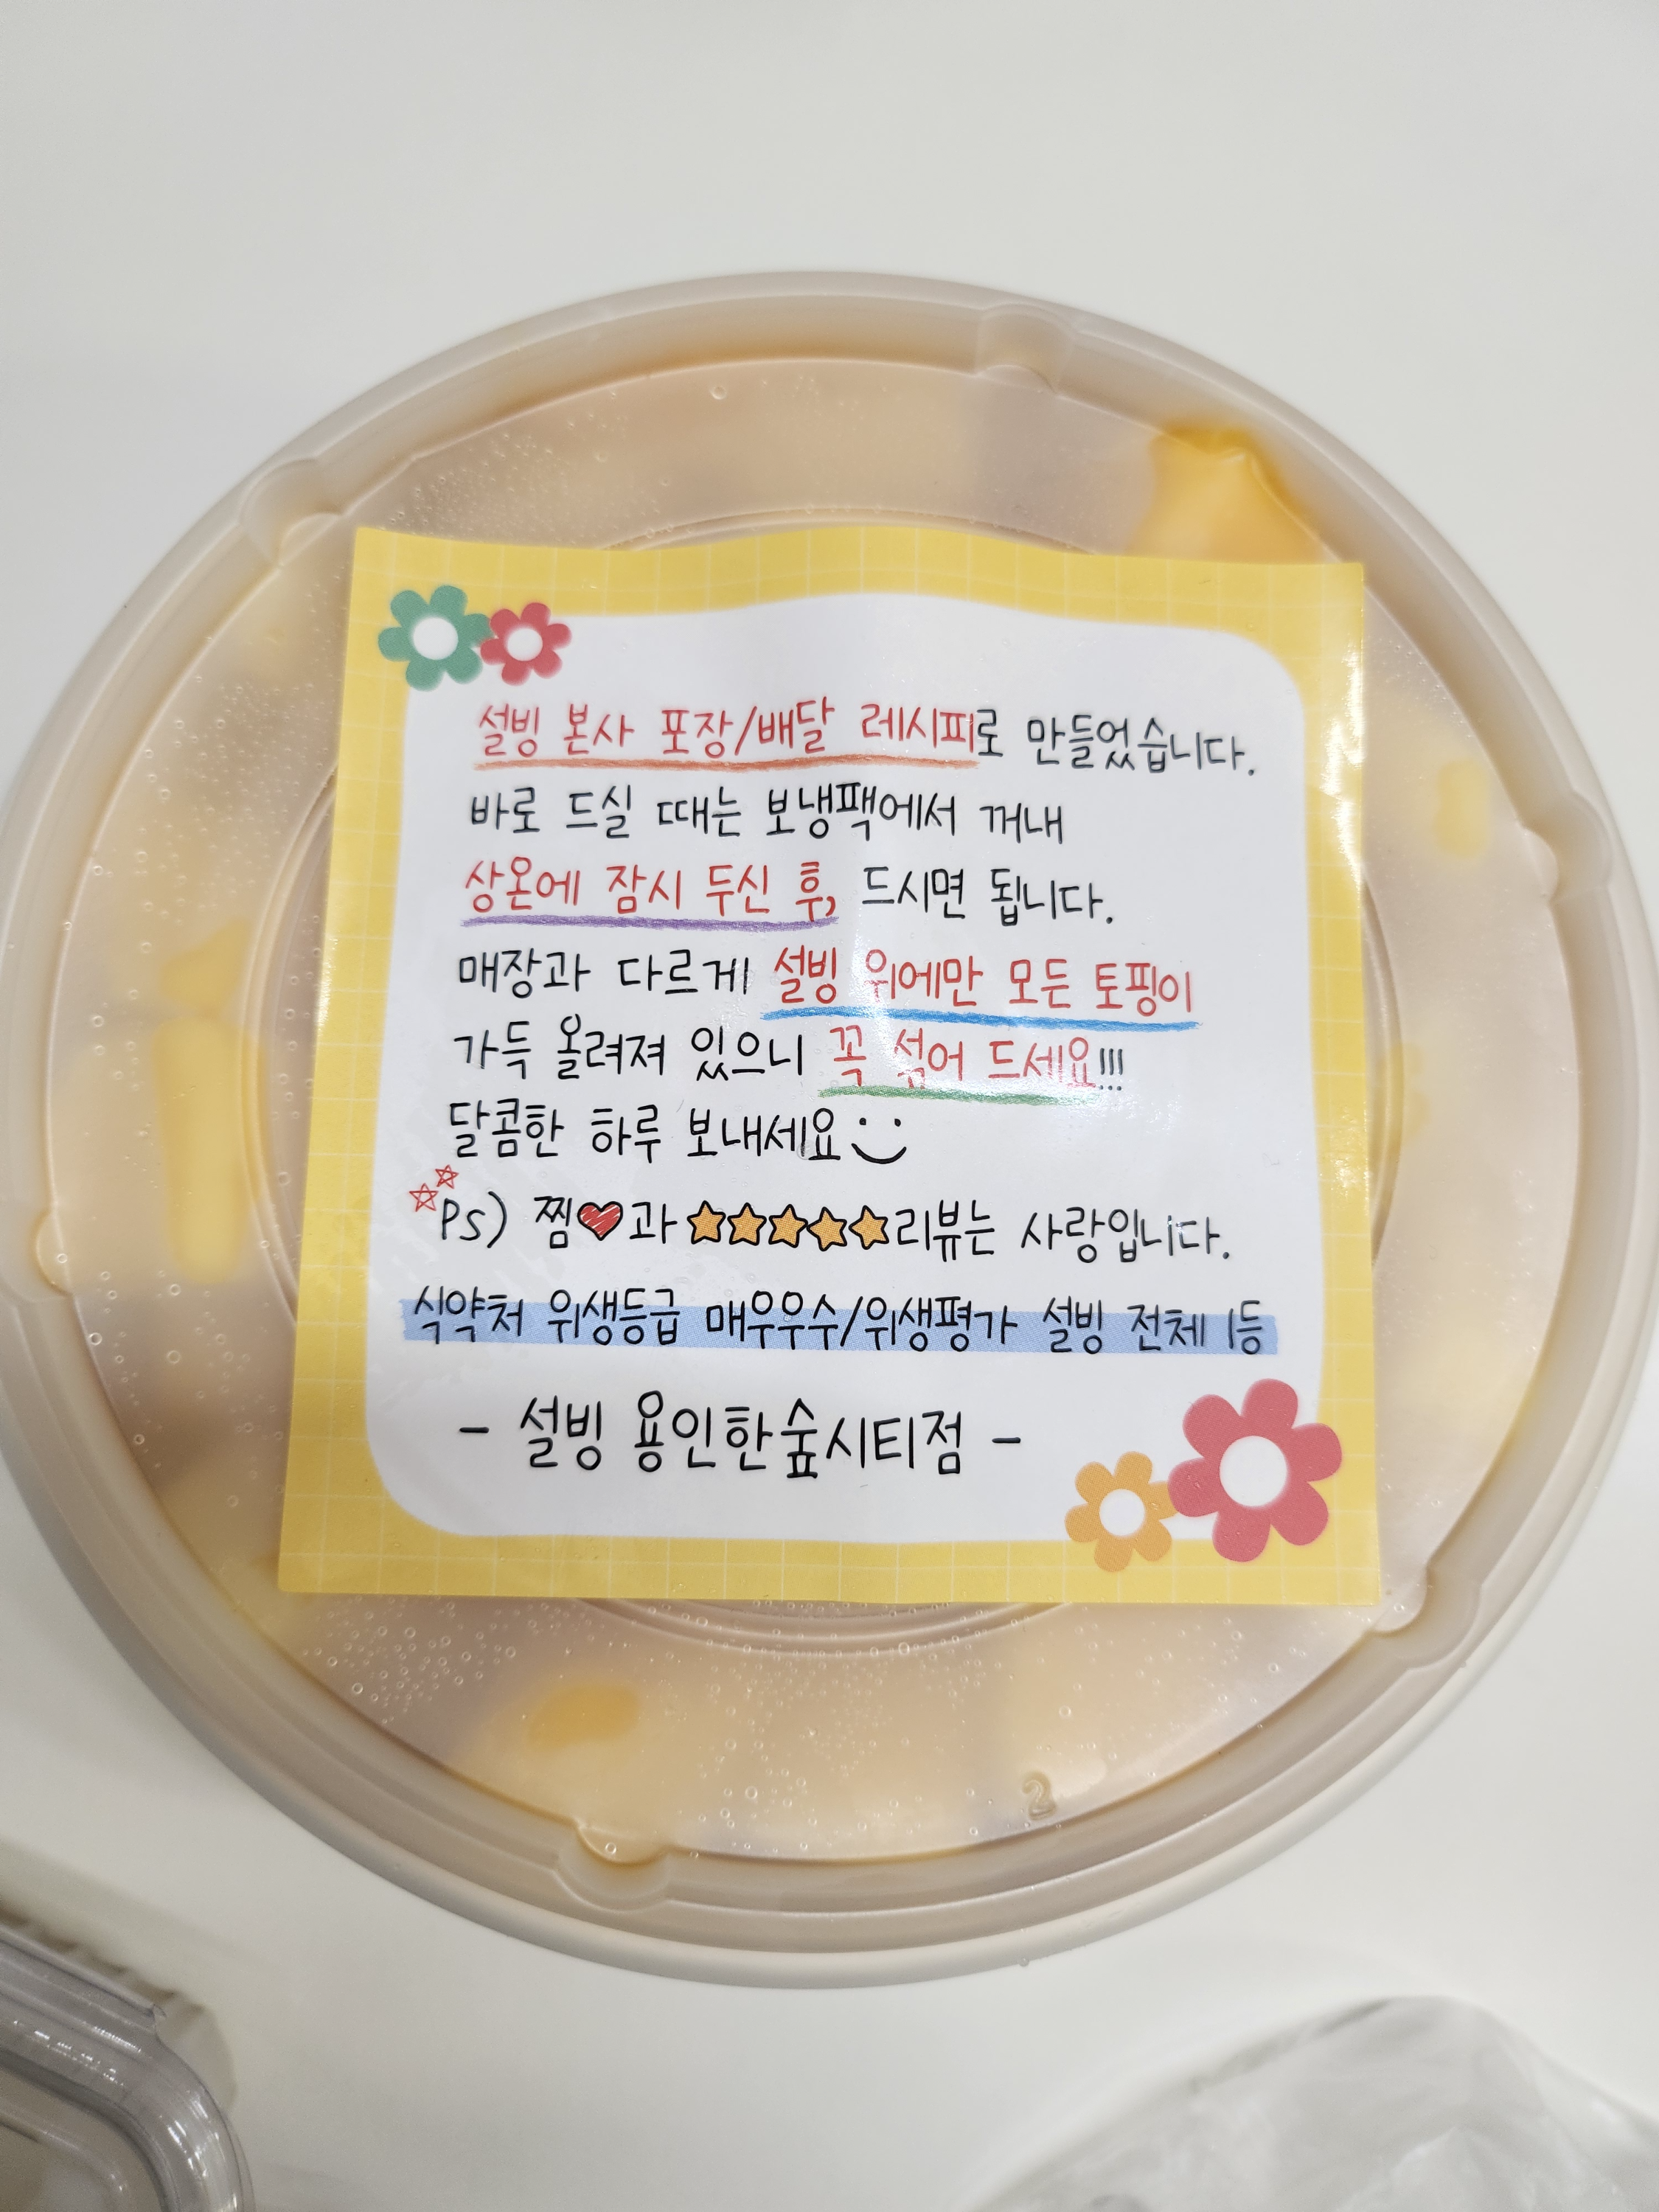 설빙 본사 포장/배달 레시피로 만들었습니다.
바로 드실 때는 보냉팩에서 꺼내
상온에 잠시 두신 후, 드시면 됩니다.
매장과 다르게 설빙 위에만 모든 토핑이
가득 올려져 있으니 꼭 섞어 드세요!!!
달콤한 하루 보내세요
Ps) 찜♥과 ★★★★★리뷰는 사랑입니다.
식약처 위생등급 매우우수/위생평가 설빙 전체 1등
- 설빙 용인한숲시티점 -
2